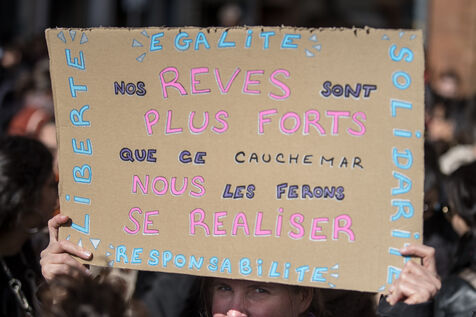 EGALITE
LIBERTE
NOS REVES SONT
PLUS FORTS
QUE CE CAUCHEMAR
NOUS LES FERONS
SE REALISER
SOLIDARITE
RESPONSABILITE